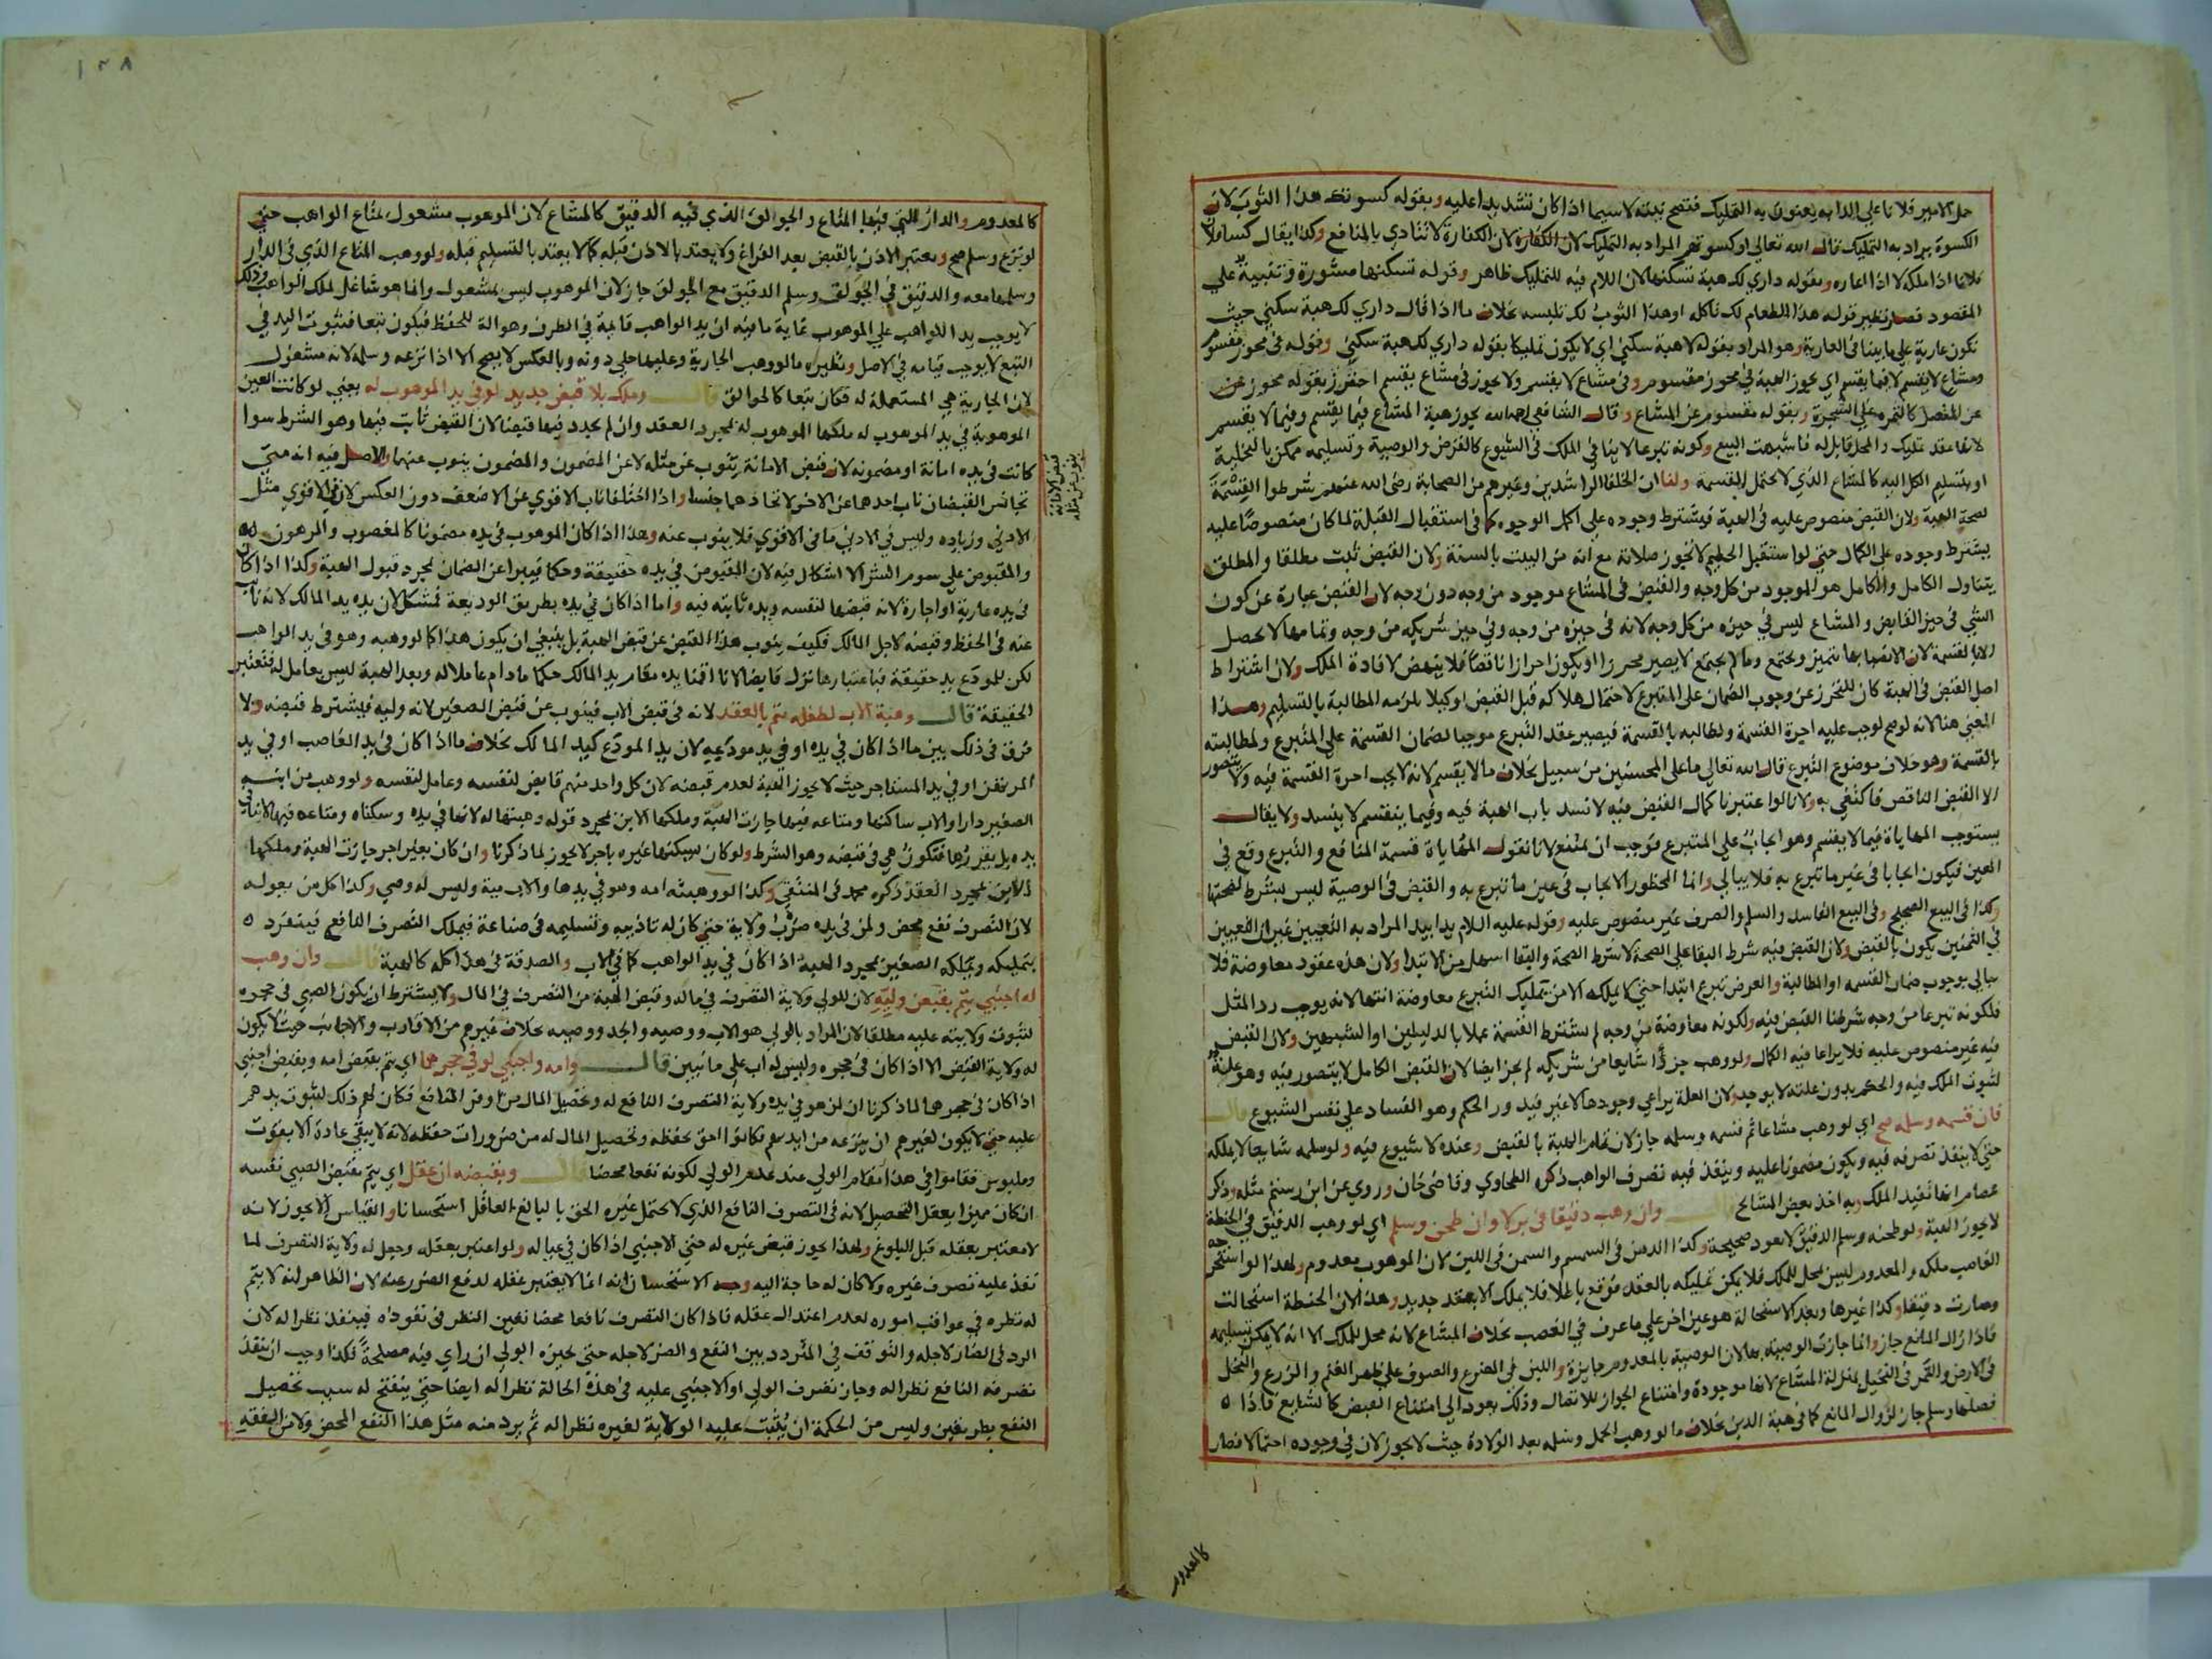 حمل الامير فلانا علي الدابه يعنون به التمليك فتصح نيته لا سيما اذا كان تشديدا عليه وبقوله كسوتك هذا الثوب لان
الكسوة يراد به التمليك قال الله تعالي او كسوتهم المراد به التمليك لان الكفارة لا تتادي بالمنافع وكذا يقال كسا فلان
فلانا اذا ملكه لا اذا اعاره وبقوله داري لك هبة تسكنها لان اللام فيه للتمليك ظاهر وقوله تسكنها مشورة وتنبيه علي
المقصود فصار نظير قوله هذا الطعام لك تاكله او هذا الثوب لك تلبسه بخلاف ما اذا قال داري لك هبة سكني حيث
تكون عارية علي ما بينا في العارية وهو المراد بقوله لا هبة سكني اي لا يكون تمليكا بقوله داري لك هبة سكني وقوله في محوز مقسوم
ومشاع لا يقسم لا فيما يقسم اي يجوز الهبة في محوز مقسوم وفي مشاع لا يقسم ولا يجوز في مشاع يقسم احترز بقوله محوز عن
عن المتصل كالثمر علي الشجرة وبقوله مقسوم عن المشاع وقال الشافعي رحمه الله يجوز هبة المشاع فيما يقسم وفيما لا يقسم
لانها عقد تمليك والمحل قابل له فاشبهت البيع وكونه تبرعا لا ينافي الملك في الشيوع كالقرض والوصية وتسليمه ممكن بالتخلية
او بتسليم الكل اليه كالمشاع الذي لا يحتمل القسمة ولنا ان الخلفا الراشدين وغيرهم من الصحابة رضي الله عنهم شرطوا القسمة
لصحة الهبة ولان القبض منصوص عليه في الهبة فيشترط وجوده علي اكمل الوجوه كما في استقبال القبلة لما كان منصوصا عليه
يشترط وجوده علي الكمال حتي لو استقبل الحطيم لا تجوز صلاته مع انه من البيت بالسنة ولان القبض ثبت مطلقا والمطلق
يتناول الكامل والكامل هو الموجود من كل وجه والقبض في المشاع موجود من وجه دون وجه لان القبض عبارة عن كون
الشي في حيز القابض والمشاع ليس في حيزه من كل وجه لانه في حيزه من وجه وفي حيز شريكه من وجه وتمامها لا يحصل
الا بالقسمة لان الانصبا بها تتميز وتجتمع وما لم يجتمع لا يصير محرزا او يكون احرازا ناقصا فلا ينهض لافادة الملك ولان اشتراط
اصل القبض في الهبة كان للتحرز عن وجوب الضمان علي المتبرع لاحتمال هلاكه قبل القبض او كيلا يلزمه المطالبة بالتسليم وهذا
المعني هنا لانه لو صح لوجب عليه اجرة القسمة ولطالبه بالقسمة فيصير عقد التبرع موجبا لضمان القسمة علي المتبرع ولمطالبته
بالقسمة وهو خلاف موضوع التبرع قال الله تعالي ما علي المحسنين من سبيل بخلاف ما لا يقسم لانه لا يجب اجرة القسمة فيه ولا يتصور
الا القبض الناقص فاكتفي به ولانا لو اعتبرنا كمال القبض فيه لانسد باب الهبة فيه وفيما ينقسم لا ينسد ولا يقال
يستوجب المهاياة فيما لا يقسم وهو ايجاب علي المتبرع فوجب ان يمتنع لانا نقول المهاياة قسمة المنافع والتبرع وقع في
العين فيكون ايجابا في غير ما تبرع به فلا يبالي وانما المحظور الايجاب في عين ما تبرع به والقبض في الوصية ليس بشرط لصحتها
وكذا في البيع الصحيح وفي البيع الفاسد والسلم والصرف غير منصوص عليه وقوله عليه السلام يدا بيد المراد به التعيين غير ان التعيين
في الثمنين يكون بالقبض ولان القبض فيه شرط البقا علي الصحة لا شرط الصحة والبقا اسهل من الابتدا ولان هذه عقود معاوضة فلا
يبالي بوجوب ضمان القسمه او المطالبة والقرض تبرع ابتدا حتي لا يملكه الا من يملك التبرع معاوضة انتها لانه يوجب رد المثل
فلكونه تبرعا من وجه شرطنا القبض فيه ولكونه معاوضة من وجه لم نشترط القسمة عملا بالدليلين او الشبهين ولان القبض
فيه غير منصوص عليه فلا يراعا فيه الكمال ولو وهب جزءا شايعا من شريكه لم يجز ايضا لان القبض الكامل لا يتصور فيه وهو علة
لثبوت الملك فيه والحكم بدون علته لا يوجد ولان العلة يراعي وجودها لا غير فيدور الحكم وهو الفساد علي نفس الشيوع قال
فان قسمه وسلمه صح اي لو وهب مشاعا ثم قسمه وسلمه جاز لان تمام الهبة بالقبض وعنده لا شيوع فيه ولو سلمه شايعا لا يملكه
حتي لا ينفذ تصرفه فيه ويكون مضمونا عليه وينفذ فيه تصرف الواهب ذكره الطحاوي وقاضي خان وروي عن ابن رستم مثله وذكر
عصام انها تفيد الملك وبه اخذ بعض المشايخ قال وان وهب دقيقا في بر لا وان طحن وسلم اي لو وهب الدقيق في الحنطة
لا يجوز الهبة ولو طحنه وسلم الدقيق لا يعود صحيحة وكذا الدهن في السمسم والسمن في اللبن لان الموهوب معدوم ولهذا لو استخرجه
الغاصب ملكه والمعدوم ليس بمحل للملك فلا يمكن تمليكه بالعقد فوقع باطلا فلا يملك الا بعقد جديد وهذا لان الحنطة استحالت
وصارت دقيقا وكذا غيرها وبعد الاستحالة هو عين اخر علي ما عرف في الغصب بخلاف المشاع لانه محل للملك الا انه لا يمكن تسليمه
فاذا زال المانع جاز وانما جازت الوصية بها لان الوصية بالمعدوم جايزة واللبن في الضرع والصوف علي ظهر الغنم والزرع والنخل
في الارض والتمر في النخيل بمنزلة المشاع لانها موجودة وامتناع الجواز للاتصال وذلك يعود الي امتناع القبض كالشايع فاذا
فصلها وسلم جاز لزوال المانع كما في هبة الدين بخلاف ما لو وهب الحمل وسلمه بعد الولادة حيث لا يجوز لان في وجوده احتمالا فصار
كالمعدوم
١٣٨
كالمعدوم والدار التي فيها المتاع والجوالق الذي فيه الدقيق كالمشاع لان الموهوب مشغول بمتاع الواهب حتي
لو نزع وسلم صح ويعتبر الاذن بالقبض بعد الفراغ ولا يعتد بالاذن قبله كما لا يعتد بالتسليم قبله ولو وهب المتاع الذي في الدار
وسلمها معه والدقيق في الجولق وسلم الدقيق مع الجولق جاز لان الموهوب ليس بمشغول وانما هو شاغل لملك الواهب وذلك
لا يوجب يد الواهب علي الموهوب غاية ما فيه ان يد الواهب قايمة في الظرف وهو الة للحفظ فيكون تبعا فثبوت اليد في
التبع لا يوجب قيامه في الاصل ونظيره ما لو وهب الجارية وعليها حلي دونه وبالعكس لا يصح الا اذا نزعه وسلمه لانه مشغول
لان الجارية هي المستعملة له فكان تبعا كالجوالق قال وملك بلا قبض جديد لو في يد الموهوب له يعني لو كانت العين
الموهوبة في يد الموهوب له ملكها الموهوب له بمجرد العقد وان لم يجدد فيها قبضا لان القبض ثابت فيها وهو الشرط سوا
كانت في يده امانة او مضمونه لان قبض الامانة ينوب عن مثله لا عن المضمون والمضمون ينوب عنهما والاصل فيه انه متي
تجانس القبضان ناب احدهما عن الاخر لاتحادهما جنسا واذا اختلفا ناب الاقوي عن الاضعف دون العكس لان في الاقوي مثل
الادني وزياده وليس في الادني ما في الاقوي فلا ينوب عنه وهذا اذا كان الموهوب في يده مضمونا كالمغصوب والمرهون
والمقبوض علي سوم الشرا لا اشكال فيه لان المقبوض في يده حقيقة وحكما فيبرا عن الضمان بمجرد قبول الهبة وكذا اذا كان
في يده عارية او اجارة لانه قبضها لنفسه ويده ثابته فيه واما اذا كان في يده بطريق الوديعة فمشكل لان يده يد المالك لانه نايب
عنه في الحفظ وقبضه لاجل المالك فكيف ينوب هذا القبض عن قبض الهبة بل ينبغي ان يكون هذا كما لو وهبه وهو في يد الواهب
لكن للمودع يد حقيقة فباعتبارها نزل قابضا لانا اقمنا يده مقام يد المالك حكما ما دام عاملا له وبعد الهبة ليس بعامل له فتعتبر
الحقيقة قال وهبة الاب لطفله يتم بالعقد لانه في قبض الاب فينوب عن قبض الصغير لانه وليه فيشترط قبضه ولا
فرق في ذلك بين ما اذا كان في يده او في يد مودعه لان يد المودع كيد المالك بخلاف ما اذا كان في يد الغاصب او في يد
المرتهن او في يد المستاجر حيث لا يجوز الهبة لعدم قبضه لان كل واحد منهم قابض لنفسه وعامل لنفسه ولو وهب من ابنه
الصغير دارا والاب ساكنها ومتاعه فيها جازت الهبة وملكها الابن بمجرد قوله وهبتها له لانها في يده وسكناه ومتاعه فيها لا ينافي
يده بل يقررها فتكون هي في قبضه وهو الشرط ولو كان يسكنها غيره باجر لا يجوز لما ذكرنا وان كان بغير اجر جازت الهبة وملكها
الابن بمجرد العقد ذكره محمد في المنتقي وكذا لو وهبته امه وهو في يدها والاب ميت وليس له وصي وكذا كل من يعوله
لان التصرف نفع محض ولمن في يده ضرب ولاية حتي كان له تاديبه وتسليمه في صناعة فيملك التصرف النافع فينفرد
بتمليكه ويملكه الصغير بمجرد الهبة اذا كان في يد الواهب كما في الاب والصدقة في هذا كله كالهبة قال وان وهب
له اجنبي يتم بقبض وليه لان للولي ولاية التصرف في ماله وقبض الهبة من التصرف في المال ولا يشترط ان يكون الصبي في حجره
لثبوت ولايته عليه مطلقا لان المراد بالولي هو الاب ووصيه والجد ووصيه بخلاف غيرهم من الاقارب والاجانب حيث لا يكون
له ولاية القبض الا اذا كان في حجره وليس له اب علي ما نبين قال وامه واجنبي لو في حجرهما اي يتم بقبض امه وبقبض اجنبي
اذا كان في حجرهما لما ذكرنا ان لمن هو في يده ولاية التصرف النافع له وتحصيل المال من اوفر المنافع فكان لهم ذلك لثبوت يدهم
عليه حتي لا يكون لغيرهم ان ينزعه من ايديهم فكانوا احق بحفظه وتحصيل المال له من ضرورات حفظه لانه لا يبقي عادة الا بقوت
وملبوس فقاموا في هذا مقام الولي عند عدم الولي لكونه نفعا محضا قال وبقبضه ان عقل اي يتم بقبض الصبي نفسه
ان كان مميزا يعقل التحصيل لانه في التصرف النافع الذي لا يحتمل غيره الحق بالبالغ العاقل استحسانا والقياس ان لا يجوز لانه
لا معتبر بعقله قبل البلوغ ولهذا يجوز قبض غيره له حتي الاجنبي اذا كان في عياله ولو اعتبر بعقله وجعل له ولاية التصرف لما
نفذ عليه تصرف غيره ولا كان له حاجة اليه وجه الاستحسان انه انما لا يعتبر عقله لدفع الضرر عنه لان الظاهر انه لا يتم
له نظره في عواقب اموره لعدم اعتدال عقله فاذا كان التصرف نافعا محضا تعين النظر في نفوذه فينفذ نظرا له لان
الرد في الضار لاجله والتوقف في المتردد بين النفع والضر لاجله حتي يجيزه الولي ان راي فيه مصلحة فكذا وجب ان ينفذ
تصرفه النافع نظرا له وجاز تصرف الولي او الاجنبي عليه في هذه الحالة نظرا له ايضا حتي ينفتح له سبب تحصيل
النفع بطريقين وليس من الحكمة ان يثبت عليه الولاية لغيره نظرا له ثم يرد منه مثل هذا النفع المحض ولان الفقه
قبض الامانة
ينوب عن مثله